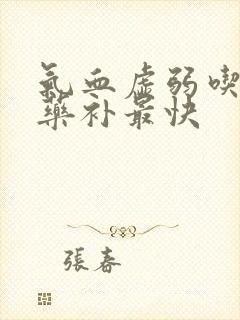 氣血虛弱喫
藥补最快
張春